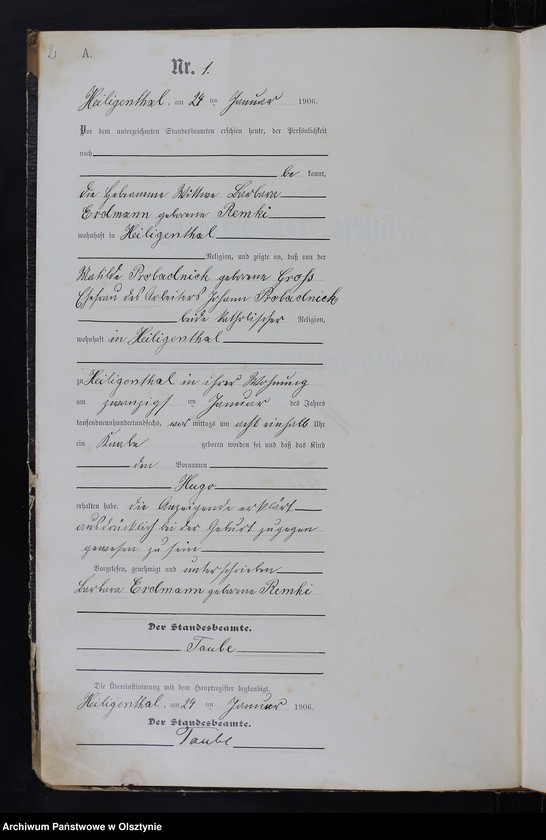 2
A.
Nr. 1.
Heiligenthal, am 24 ten Januar 1906.
Vor dem unterzeichneten Standesbeamten erschien heute, der Persönlichkeit
nach
be kannt,
die Hebeamme Wittwe Barbara
Erdmann geborene Remki
wohnhaft in Heiligenthal
Religion, und zeigte an, daß von der
Matilde Probadnick geborene Groß
Ehefrau des Arbeiters Johann Probadnick
beide katholischer Religion,
wohnhaft in Heiligenthal
zu Heiligenthal in ihrer Wohnung
am zwanzigst ten Januar des Jahres
tausendneunhundertundsechs, vor mittags um acht einhalb Uhr
ein Knabe geboren worden sei und daß das Kind
den Vornamen
Hugo
erhalten habe. die Anzeigende erklärt
ausdrücklich bei der Geburt zugegen
gewesen zu sein
Vorgelesen, genehmigt und unterschrieben
Barbara Erdmann geborene Remki
Der Standesbeamte.
Taube
Die Übereinstimmung mit dem Hauptregister beglaubigt.
Heiligenthal, am 24 ten Januar 1906.
Der Standesbeamte.
Taube
Archiwum Państwowe w Olsztynie